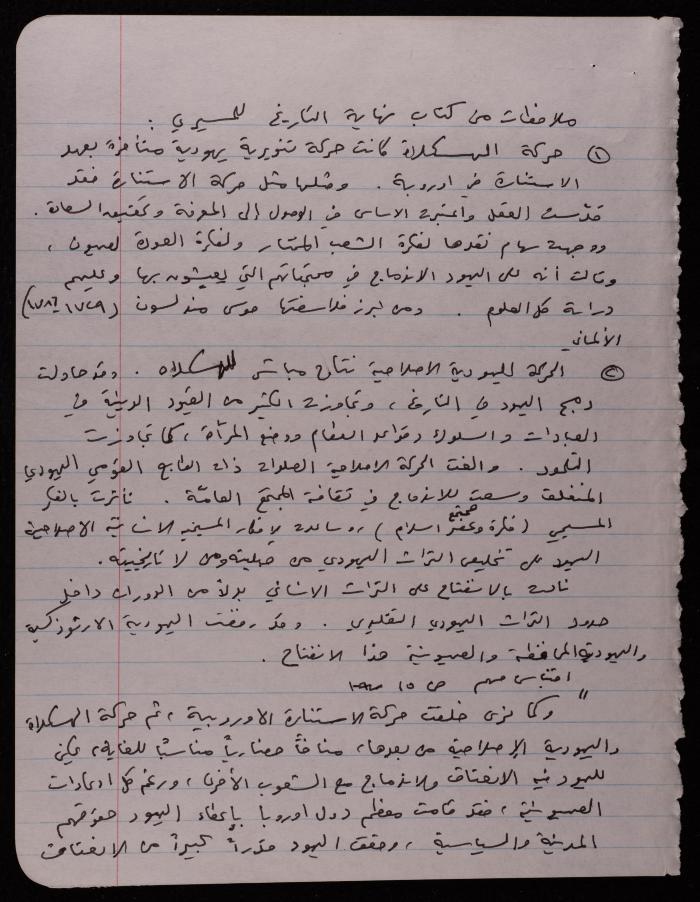 ملاحظات من كتاب نهاية التاريخ للمسيري :
١ حركة الهسكلاة كانت حركة تنويرية يهودية متأخرة بعهد
الاستنارة في اوروبة . ومثلها مثل حركة الاستنارة فقد
قدّست العقل واعتبرته الاساس في الوصول إلى المعرفة وتحقيق السعادة .
ووجهت سهام نقدها لفكرة الشعب المختار ولفكرة العودة لصهيون ،
وقالت أنه على اليهود الاندماج في مجتمعاتهم التي يعيشون بها وعليهم
دراسة كل العلوم . ومن ابرز فلاسفتها موسى مندلسون (١٧٢٩ ١٧٨٦)
الألماني
٢ الحركة اليهودية الاصلاحية نتاج مباشر للهسكلاه . وقد حاولت
دمج اليهود في التاريخ ، وتجاوزت الكثير من القيود الدينية في
العبادات والسلوك وقواعد الطعام ووضع المرأة ، كما تجاوزت
التلمود . والغت الحركة الاصلاحية الصلوات ذات الطابع القومي اليهودي
المنغلق وسعت للاندماج في ثقافة المجتمع العامّة . تأثرت بالفكر
المسيحي (فكرة مجتمع اسلام) وساعدت الاصلاحية
اليهود على تخليص التراث اليهودي من ومن لا تاريخيته .
نادت بالانفتاح على التراث الانساني بدلاً من الدوران داخل
حدود التراث اليهودي التقليدي . وقد رفضت اليهودية الارثوذكسية
واليهودية المحافظة والصهيونية هذا الانفتاح .
اقتباس مهم ص ١٥
" وكما نرى خلقت حركة الاستنارة الاوروبية ، ثم حركة الهسكلاة
واليهودية الإصلاحية من بعدها، مناخاً حضارياً مناسباً للغاية، يمكن
لليهود فيه الانعتاق والاندماج مع الشعوب الأخرى ، ورغم كل ادعاءات
الصهيونية ، فقد قامت معظم دول اوروبا بإعطاء اليهود حقوقهم
المدنية والسياسية ، وحقق اليهود قدراً كبيراً من الانعتاق